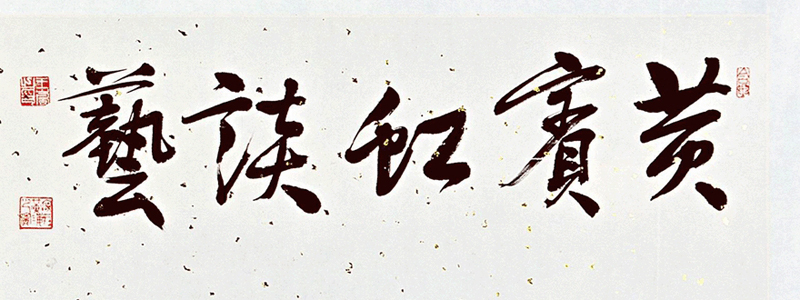 黄賓虹談藝